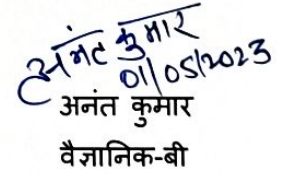 अनंत कुमार
01/05/2023
अनंत कुमार
वैज्ञानिक-बी